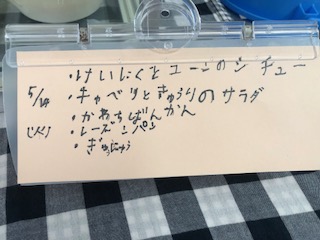 ・けいにくとコーンのシチュー
5/14 ・キャベツときゅうりのサラダ
・かわちばんかん
・レーズンパン
・ぎゅうにゅう